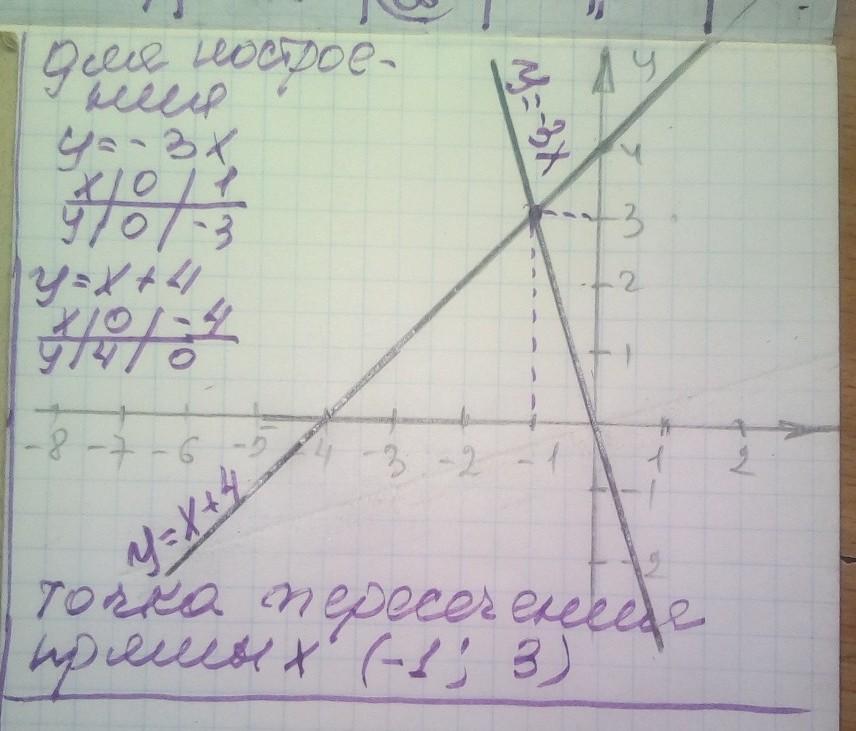 для построе-
ния
y = - 3x
x | 0 | 1
y | 0 | -3
y = x + 4
x | 0 | -4
y | 4 | 0
y
y = -3x
4
3
2
1
-8 -7 -6 -5 -4 -3 -2 -1 1 2
-1
-2
y = x + 4
точка пересечения
прямых (-1; 3)